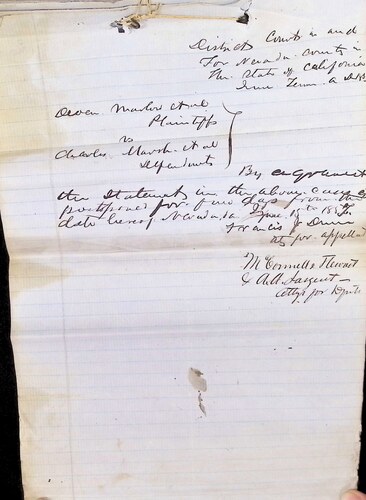 District Court in and
For Nevada County in
The State of California
June Term A D 18
Marlow et al
Plaintiffs
vs
Charles Marsh et al
Defendants
By agreement
the Statement in the above cause is
postponed for five days from the
date hereof Nevada June 18
Francis J Dunn
atty for appellant
McConnell &
& A.A. Sargent
Attys for Dfts